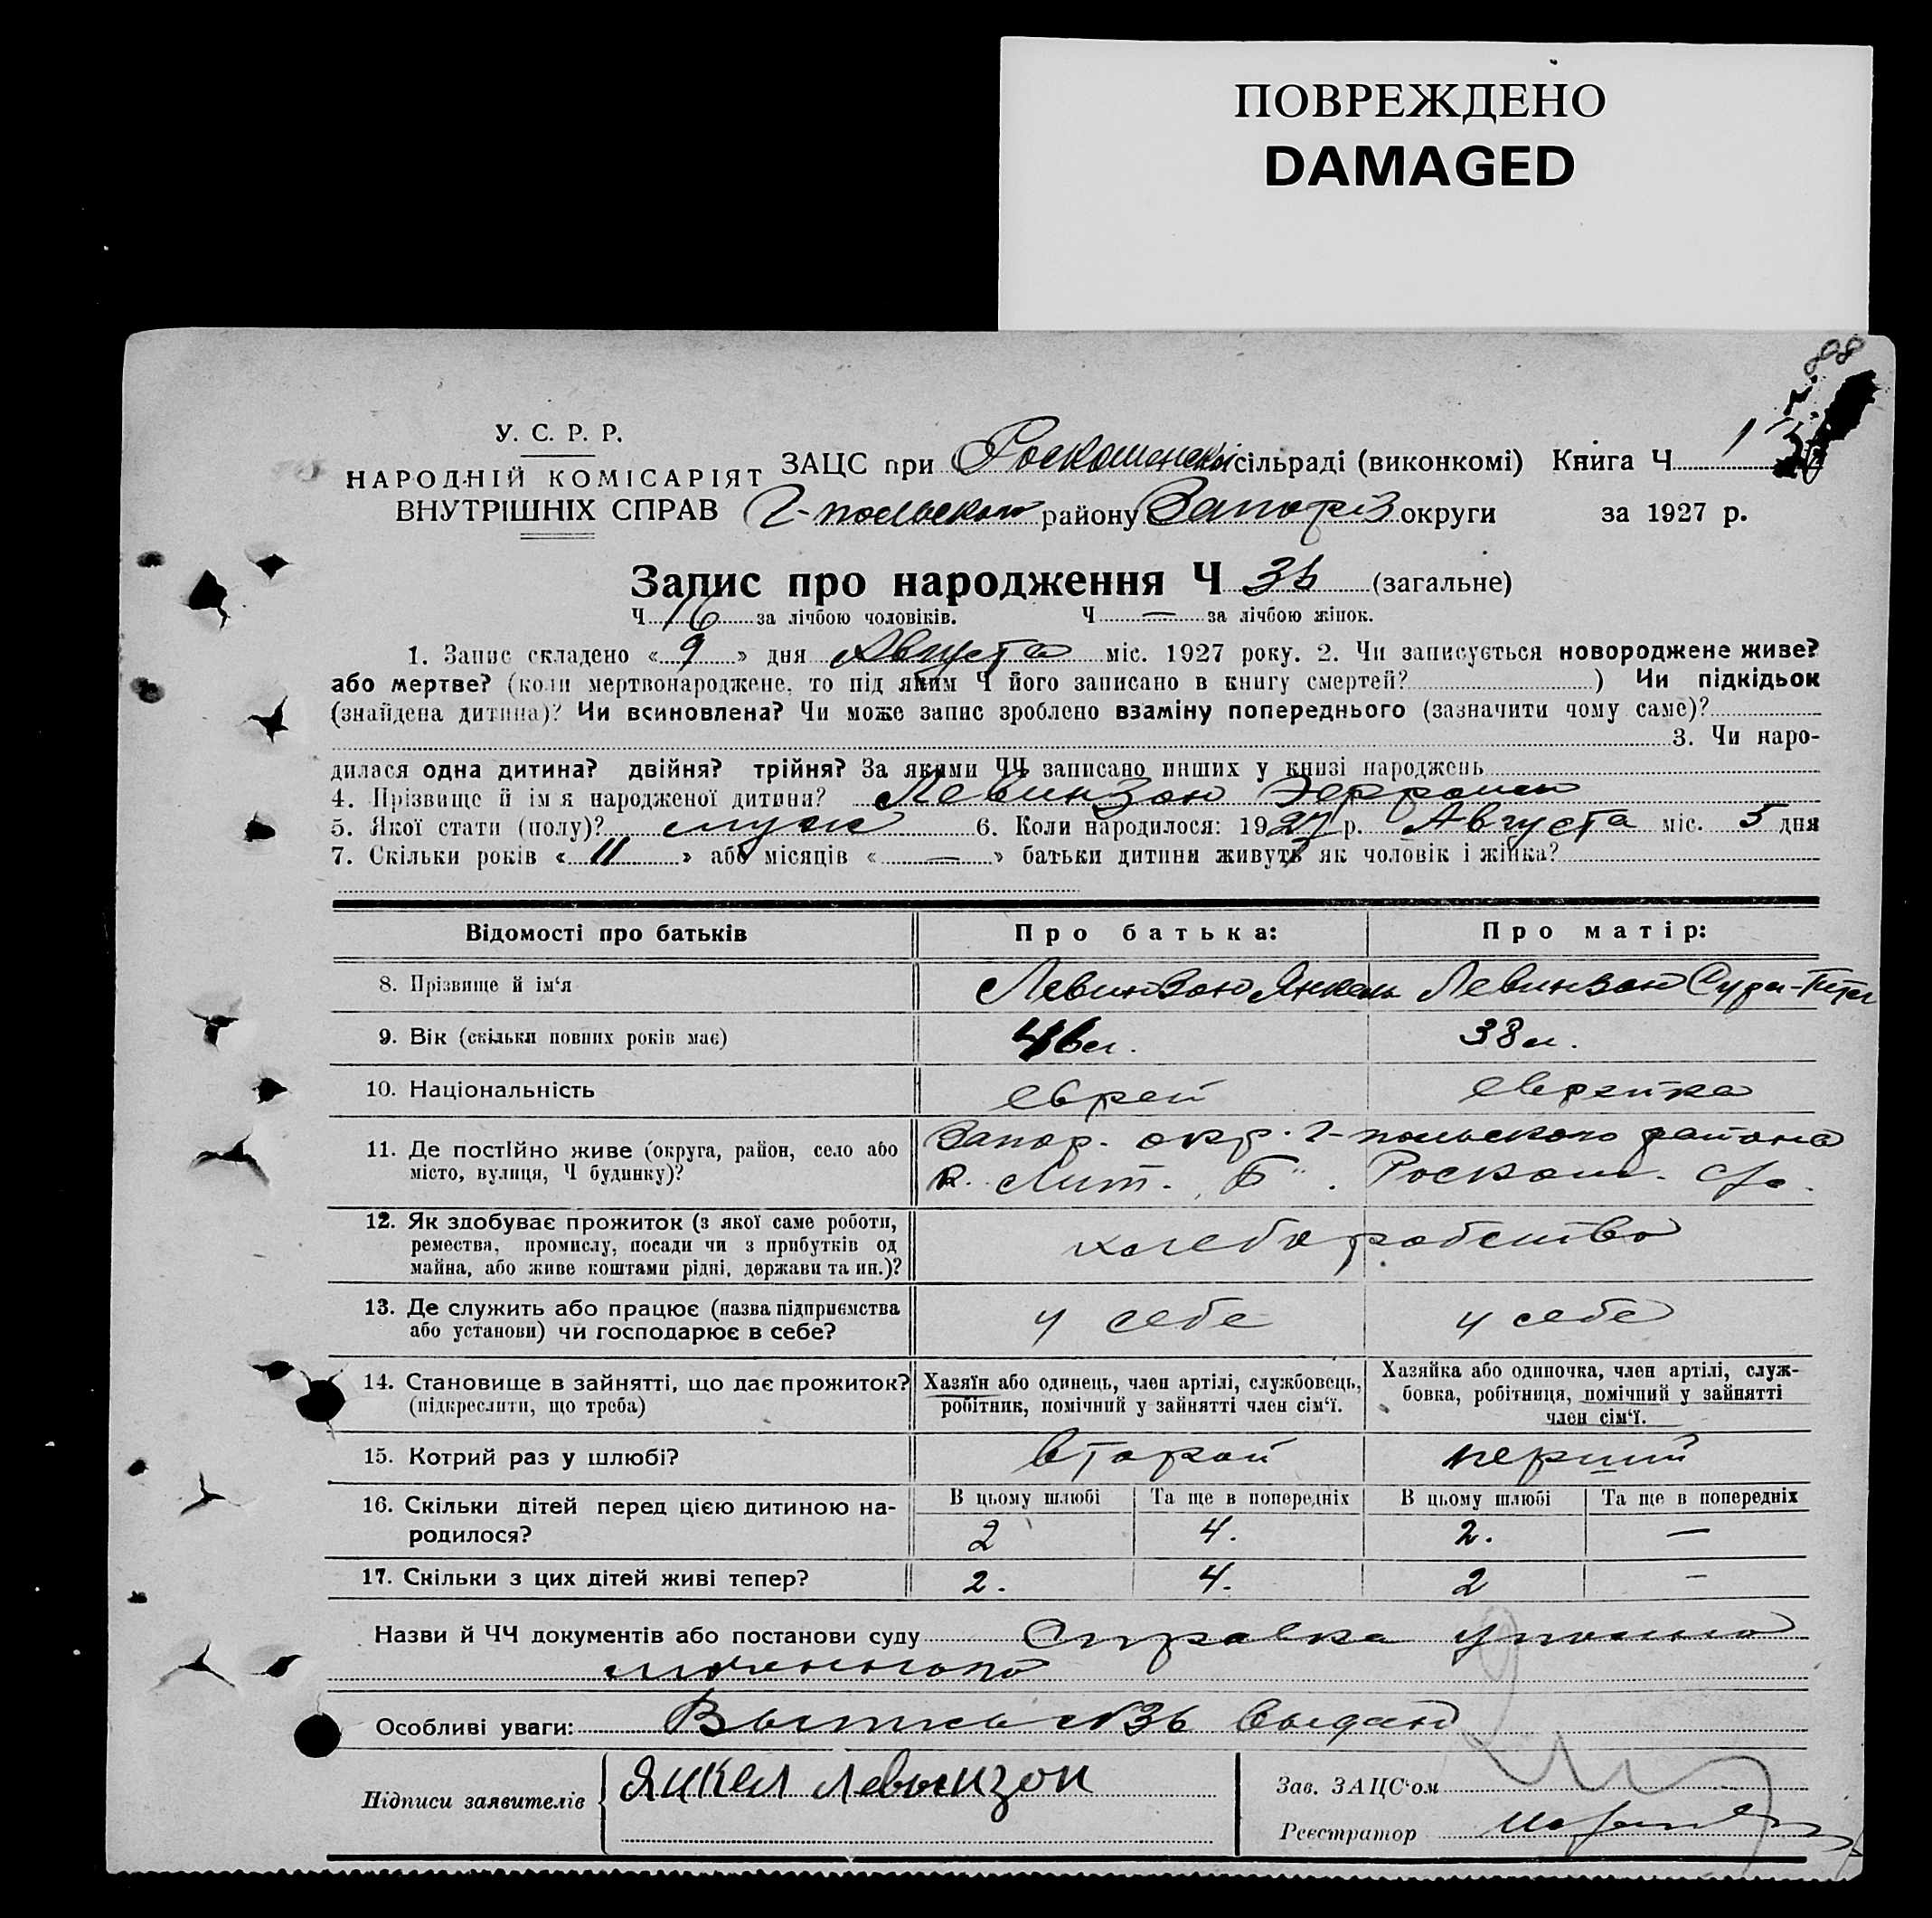 ПОВРЕЖДЕНО
DAMAGED
У. С. Р. Р.
НАРОДНІЙ КОМІСАРІЯТ
ВНУТРІШНІХ СПРАВ
ЗАЦС при Роскошенской сільраді (виконкомі) Книга Ч. 1
Г-польского району Запоріз округи за 1927 р.
Запис про народження Ч 36 (загальне)
Ч 16 за лічбою чоловіків. Ч — за лічбою жінок.
1. Запис складено « 9 » дня Августа міс. 1927 року. 2. Чи записується новороджене живе?
або мертве? (коли мертвонароджене, то під яким Ч його записано в книгу смертей? ) Чи підкідьок
(знайдена дитина)? Чи всиновлена? Чи може запис зроблено взаміну попереднього (зазначити чому саме)?
3. Чи наро-
дилася одна дитина? двійня? трійня? За якими ЧЧ записано инших у книзі народжень
4. Прізвище й ім я народженої дитини? Левинзон
5. Якої стати (полу)? муж 6. Коли народилося: 1927 р. Августа міс. 5 дня
7. Скільки років « 11 » або місяців « — » батьки дитини живуть як чоловік і жінка?
Відомості про батьків Про батька: Про матір:
8. Прізвище й ім‘я Левинзон Янкель Левинзон
9. Вік (скільки повних років має) 46 л. 38 л.
10. Національність еврей еврейка
11. Де постійно живе (округа, район, село або
місто, вулиця, Ч будинку)?
Запор. окр. Г-польского района
к. Лит. „Б". Роскош. с/с.
12. Як здобуває прожиток (з якої саме роботи,
ремества, промислу, посади чи з прибутків од
майна, або живе коштами рідні, держави та ин.)?
хлеборобство
13. Де служить або працює (назва підприємства
або установи) чи господарює в себе?
у себе у себе
14. Становище в зайнятті, що дає прожиток?
(підкреслити, що треба)
Хазяїн або одинець, член артілі, службовець,
робітник, помічний у зайнятті член сім‘ї.
Хазяйка або одиночка, член артілі, служ-
бовка, робітниця, помічний у зайнятті
член сім‘ї.
15. Котрий раз у шлюбі? второй первий
16. Скільки дітей перед цією дитиною на-
родилося?
В цьому шлюбі Та ще в попередніх В цьому шлюбі Та ще в попередніх
2 4. 2. —
17. Скільки з цих дітей живі тепер? 2. 4. 2 —
Назви й ЧЧ документів або постанови суду Справка уполно
моченного
Особливі уваги: Выпись №36 выдана
Підписи заявителів Янкел Левынзон
Зав. ЗАЦС‘ом
Реєстратор